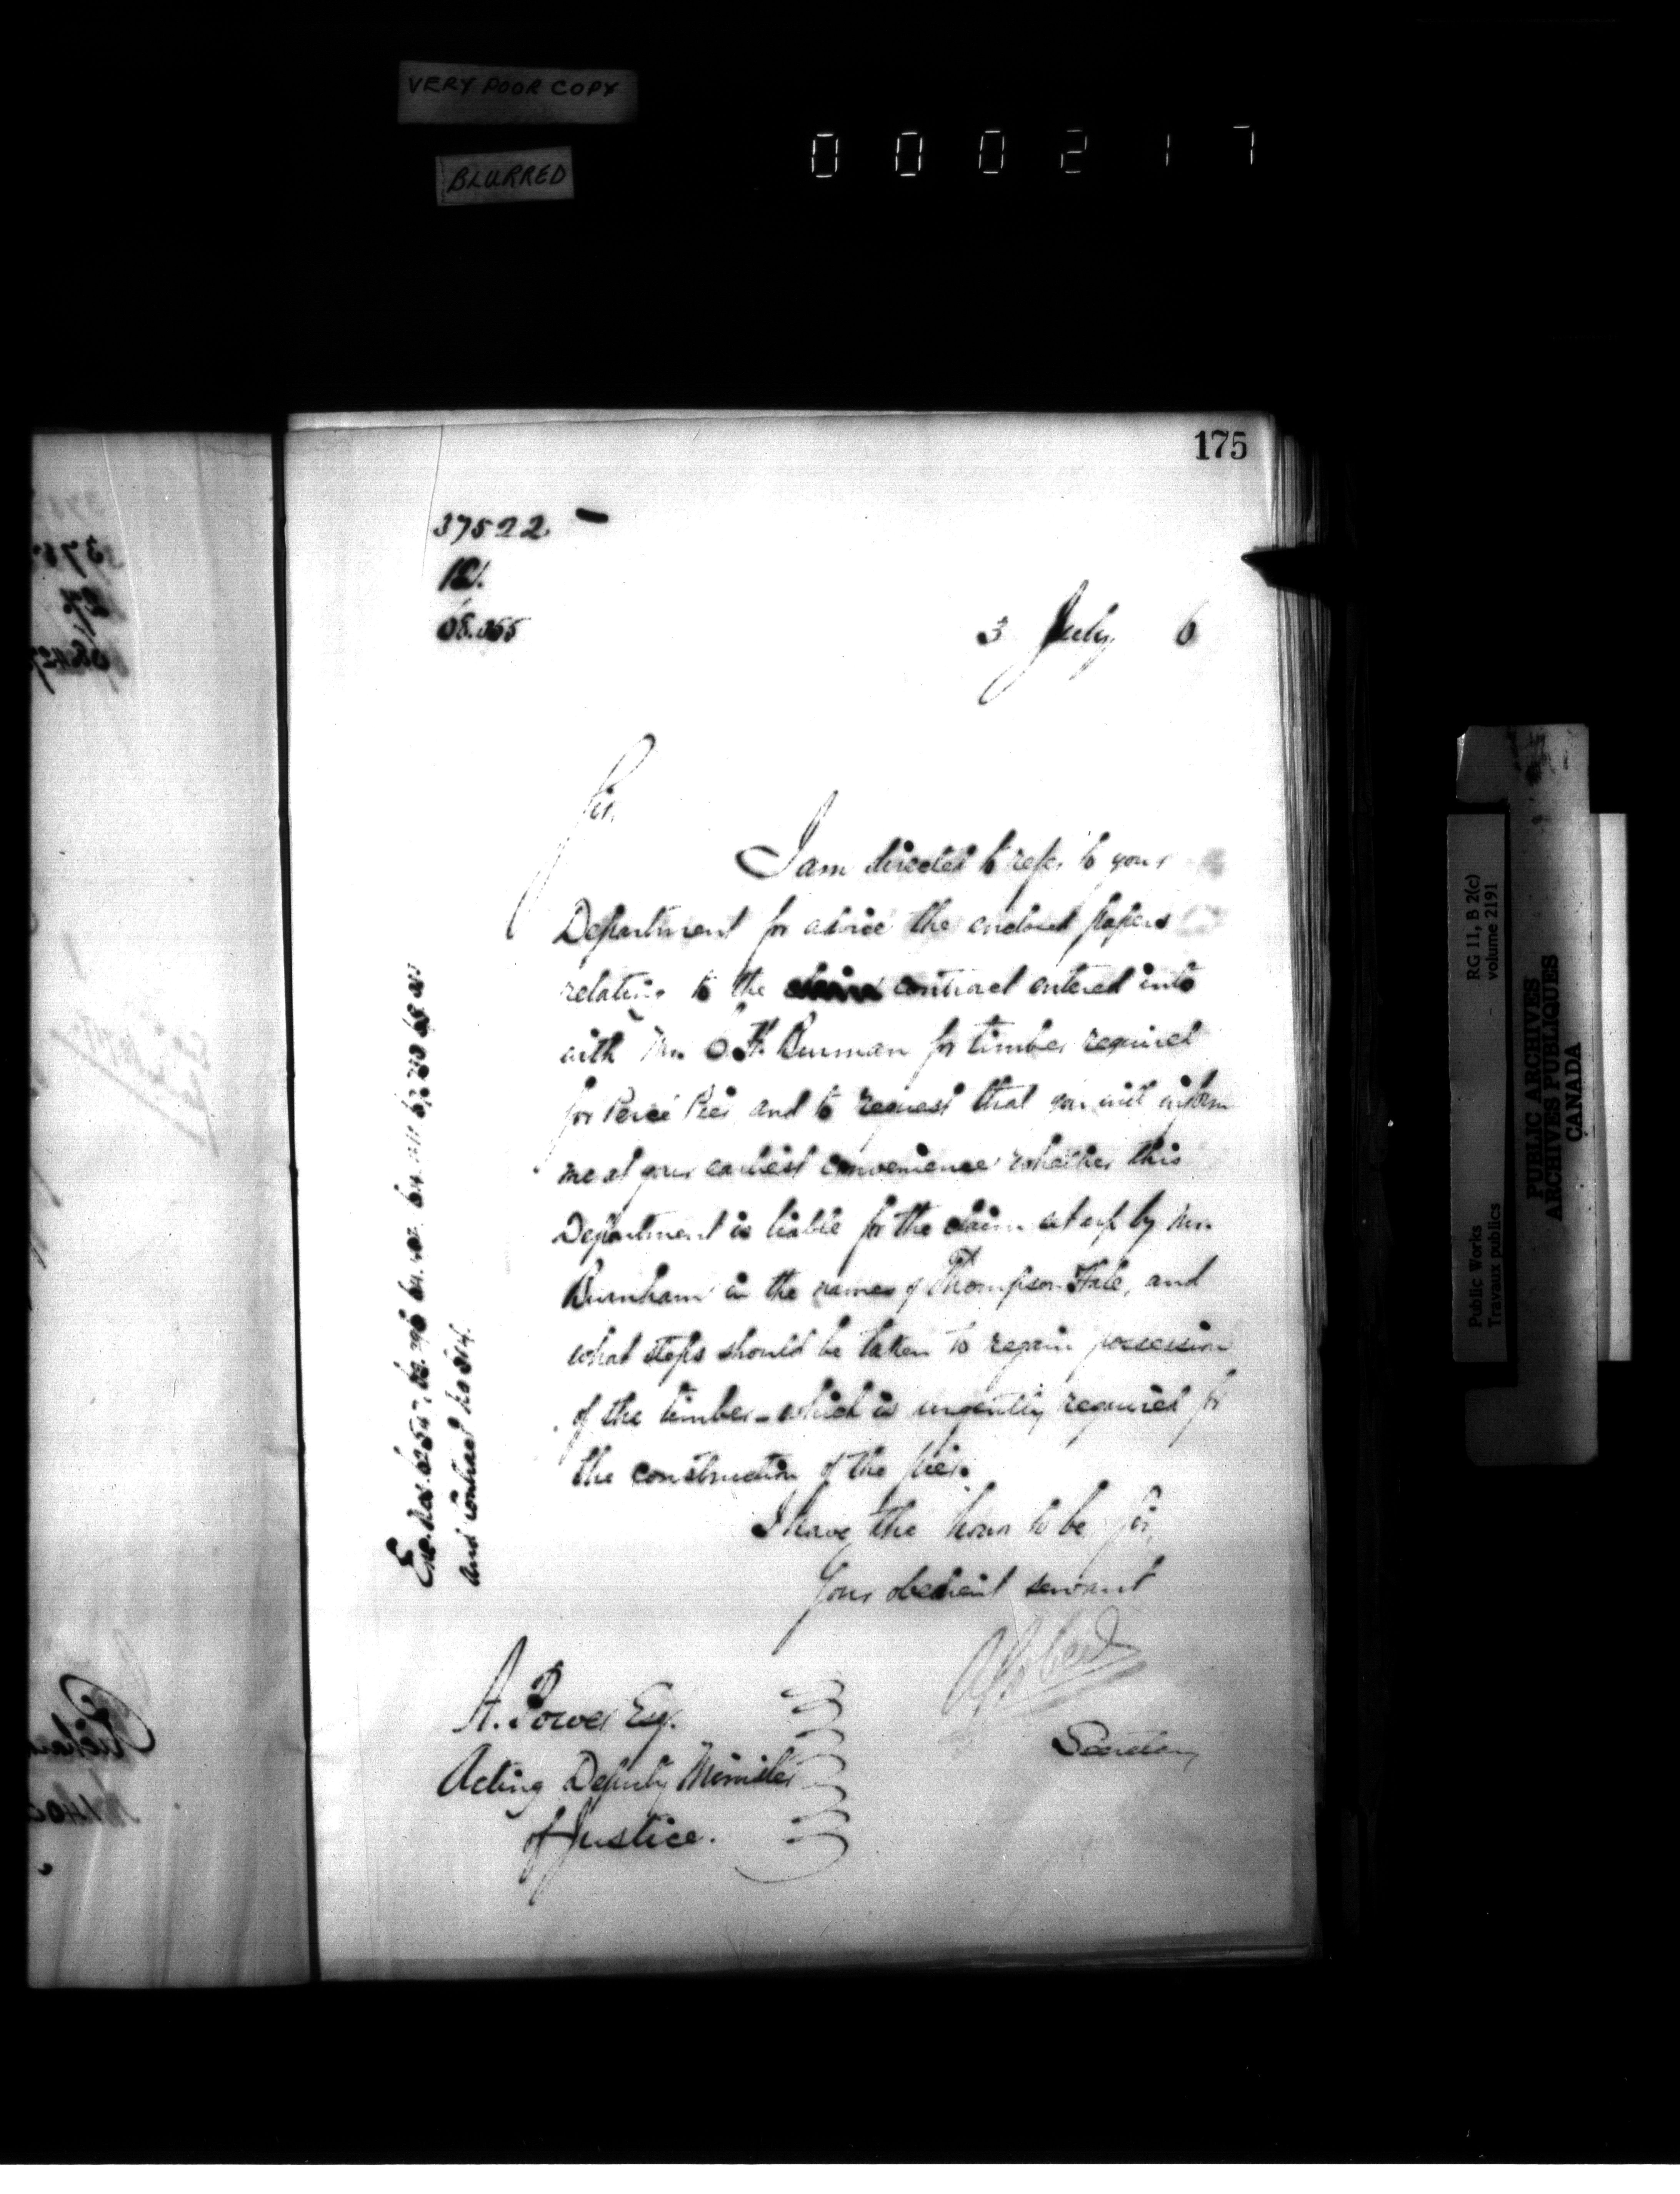 VERY POOR COPY
BLURRED
000217
175
37522
3 July 6
Sir,
I am directed to refer to your
Department for advice the enclosed papers
relating to the contract entered into
with Mr. O. F. Burman for timber required
for Percé Pier and to request that you will inform
me at your earliest convenience whether this
Department is liable for the claim set up by Mr.
Burnham in the names of Thompson Hale, and
what steps should be taken to regain possession
of the timber - which is urgently required for
the construction of the pier.
I have the honor to be, Sir,
Your obedient servant
Secretary
A. Power Esq.
Acting Deputy Minister
of Justice.
and contract no
Public Works
Travaux publics
RG 11, B 2(c)
volume 2191
PUBLIC ARCHIVES
ARCHIVES PUBLIQUES
CANADA